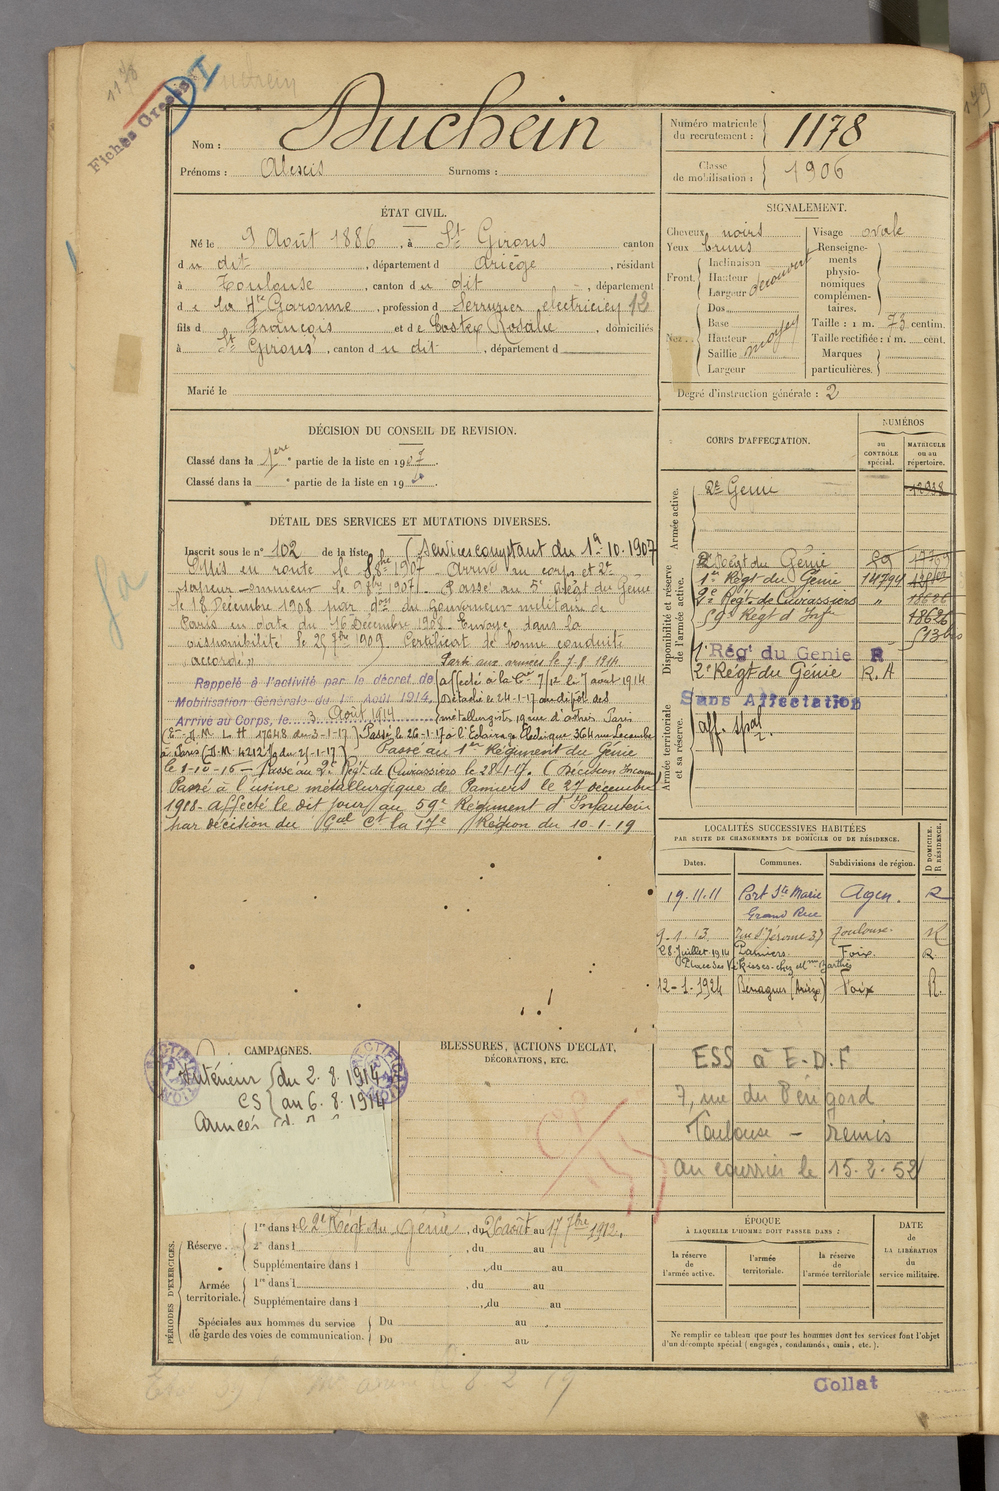 1178
Fiches
DI
Nom : Duchein
Prénoms : Alexis Surnoms :
Numéro matricule du recrutement : 1178
Classe de mobilisation : 1906
ÉTAT CIVIL.
Né le 9 Août 1886, à St Girons canton
du dit, département d Ariège, résidant
à Toulouse, canton du dit, département
de la Hte Garonne, profession d Serrurier électricien 12
fils de François et de Rosalie, domiciliés
à St Girons, canton du dit, département d
Marié le
SIGNALEMENT.
Cheveux noirs
Yeux bruns
Front. Inclinaison
Hauteur
Largeur
découvert
Nez. Dos
Base
Hauteur
Saillie
Largeur
moyen
Visage ovale
Renseignements physionomiques complémentaires.
Taille : 1 m. 73 centim.
Taille rectifiée : 1 m. cent.
Marques particulières.
Degré d'instruction générale : 2
DÉCISION DU CONSEIL DE REVISION.
Classé dans la 1ère partie de la liste en 1907.
Classé dans la e partie de la liste en 19 .
DÉTAIL DES SERVICES ET MUTATIONS DIVERSES.
Inscrit sous le n° 102 de la liste (Services comptant du 1er 10. 1907
Mis en route le 8 8bre 1907. Arrivé au corps et 2e
sapeur-mineur le 9 8bre 1907. Passé au 5e Régt du Génie
le 18 Décembre 1908 par don du Gouverneur militaire de
Paris en date du 16 Décembre 1908. Envoyé dans la
disponibilité le 25 7bre 1909. Certificat de bonne conduite
accordé " Parti aux armées le 7-8-1914
Rappelé à l'activité par le décret de
Mobilisation Générale du 1er Août 1914.
Arrivé au Corps, le 3 Août 1914
affecté à la Cie 7/12 le 7 aout 1914
Détaché le 24-1-17 au dépôt des
métallurgistes 19 rue d'astres Paris
D.M. L H 17648 du 3-1-17. Passé le 26-1-17 à l'Eclairage Electrique 364 rue Lecourbe
à Paris (D.M. 4212 du 21-1-17) Passé au 1er Régiment du Génie
le 1-10-16 — Passé au 2e Régt de Cuirassiers le 28-1-17. (Décision
Passé à l'usine métallurgique de Pamiers le 27 décembre
1918. affecté le dit jour au 59e Régiment d'Infanterie
par décision du Gal Ct la 17e Région du 10-1-19
CORPS D'AFFECTATION.
NUMÉROS
au CONTRÔLE spécial.
MATRICULE ou au répertoire.
Armée active.
2e Génie 12938
Disponibilité et réserve de l'armée active.
2e Régt du Génie 59
1er Régt du Génie 14794
2e Régt de Cuirassiers " 18606
59e Régt d'Inf 18626
513 bis
1er Rég' du Genie R
2e Régt du Génie R.A
Sans Affectation
Armée territoriale et sa réserve.
aff. spal
LOCALITÉS SUCCESSIVES HABITÉES
PAR SUITE DE CHANGEMENTS DE DOMICILE OU DE RÉSIDENCE.
Dates. Communes. Subdivisions de région. D DOMICILE. R RÉSIDENCE.
19.11.11 Port Ste Marie Agen. R
Grand Rue
9.1.13. rue St Jérome 37 Toulouse. R
28 Juillet 1914 Pamiers. Foix. R.
Place des chez Mme Barthe
12-1-1924 Bénagues (Ariège) Foix R.
ESS à E-D-F
7, rue du Périgord
Toulouse — Remis
au courrier le 15-2-52
CAMPAGNES.
RECTIFICATION
RECTIFICATION
Intérieur du 2.8.1914
CS au 6.8.1914
Armées
BLESSURES, ACTIONS D'ÉCLAT,
DÉCORATIONS, ETC.
PÉRIODES D'EXERCICES.
Réserve. 1re dans le 2e Régt du génie, du 26 août au 17 7bre 1912.
2e dans l , du au
Supplémentaire dans l , du au
Armée territoriale. 1re dans l , du au
Supplémentaire dans l , du au
Spéciales aux hommes du service de garde des voies de communication. Du au
Du au
ÉPOQUE
À LAQUELLE L'HOMME DOIT PASSER DANS :
la réserve de l'armée active.
l'armée territoriale.
la réserve de l'armée territoriale
DATE de LA LIBÉRATION du service militaire.
Ne remplir ce tableau que pour les hommes dont les services font l'objet
d'un décompte spécial (engagés, condamnés, omis, etc.).
Collat